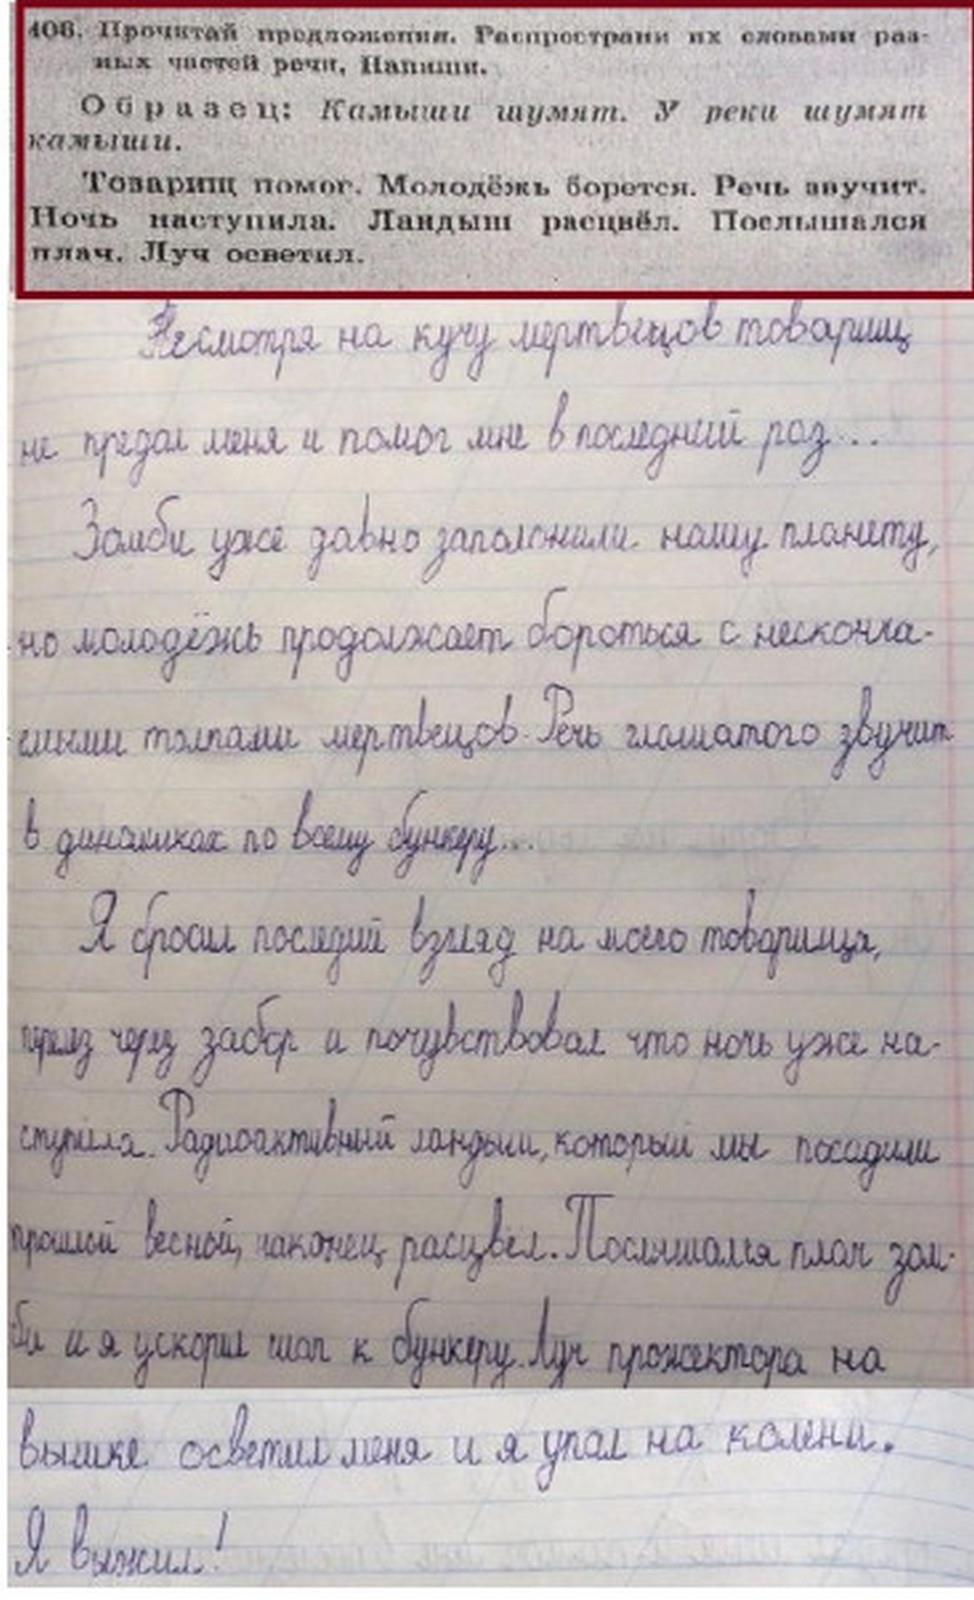 406. Прочитай предложения. Распространи их словами раз-
ных частей речи. Напиши.
Образец: Камыши шумят. У реки шумят
камыши.
Товарищ помог. Молодёжь борется. Речь звучит.
Ночь наступила. Ландыш расцвёл. Послышался
плач. Луч осветил.
Несмотря на кучу мертвецов товарищ
не предал меня и помог мне в последний раз...
Зомби уже давно заполонили нашу планету,
но молодёжь продолжает бороться с несконча-
емыми толпами мертвецов. Речь глашатого звучит
в динамиках по всему бункеру...
Я бросил последий взгляд на моего товарища,
перелез через забор и почувствовал что ночь уже на-
ступила. Радиоактивный ландыш, который мы посадили
прошлой весной, наконец расцвёл. Послышался плач зом-
би и я ускорил шаг к бункеру. Луч прожектора на
вышке осветил меня и я упал на колени.
Я выжил!